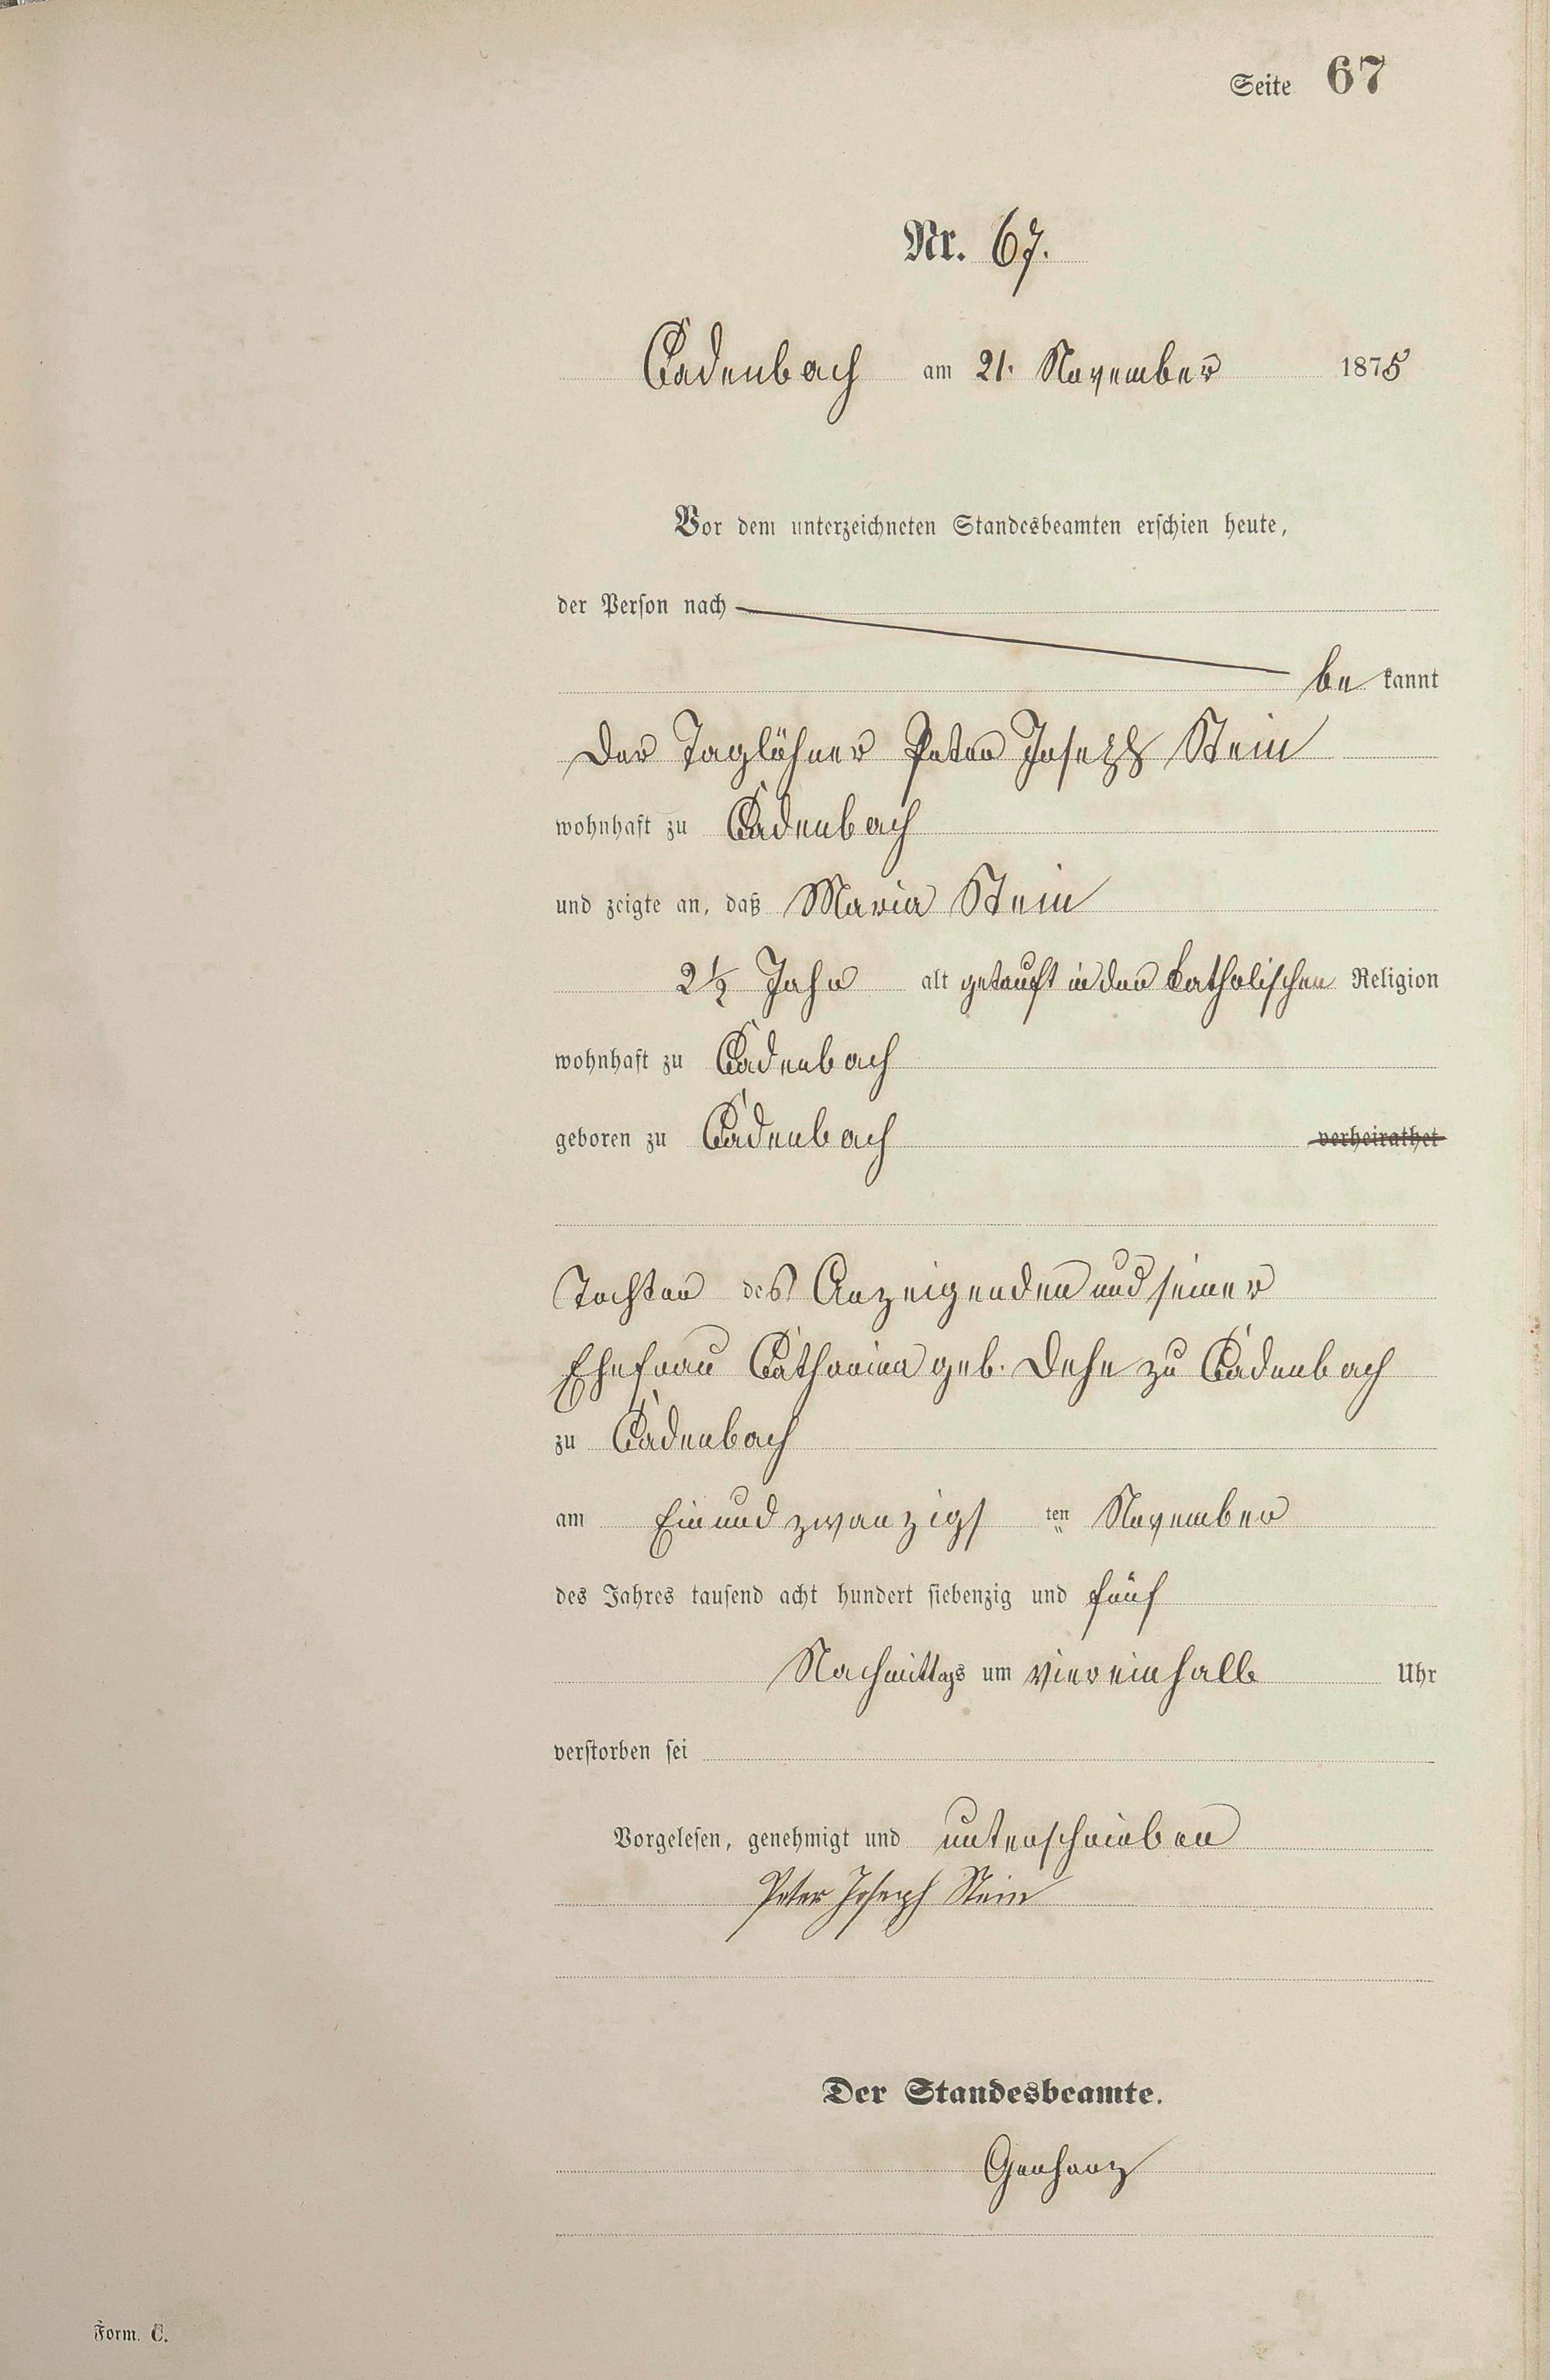 Seite 67
Nr. 67.
Cadenbach am 21. November 1875
Vor dem unterzeichneten Standesbeamten erschien heute,
der Person nach
be kannt
der Taglöhner Peter Joseph Stein
wohnhaft zu Cadenbach
und zeigte an, daß Maria Stein
2½ Jahr alt getauft in der katholischen Religion
wohnhaft zu Cadenbach
geboren zu Cadenbach verheirathet
Tochter des Anzeigenden und seiner
Ehefrau Catharina geb. Dehe zu Cadenbach
zu Cadenbach
am Einundzwanzigs ten November
des Jahres tausend acht hundert siebenzig und fünf
Nachmittags um viereinhalb Uhr
verstorben sei
Vorgelesen, genehmigt und unterschrieben
Peter Joseph Stein
Der Standesbeamte.
Gerharz
Form. C.